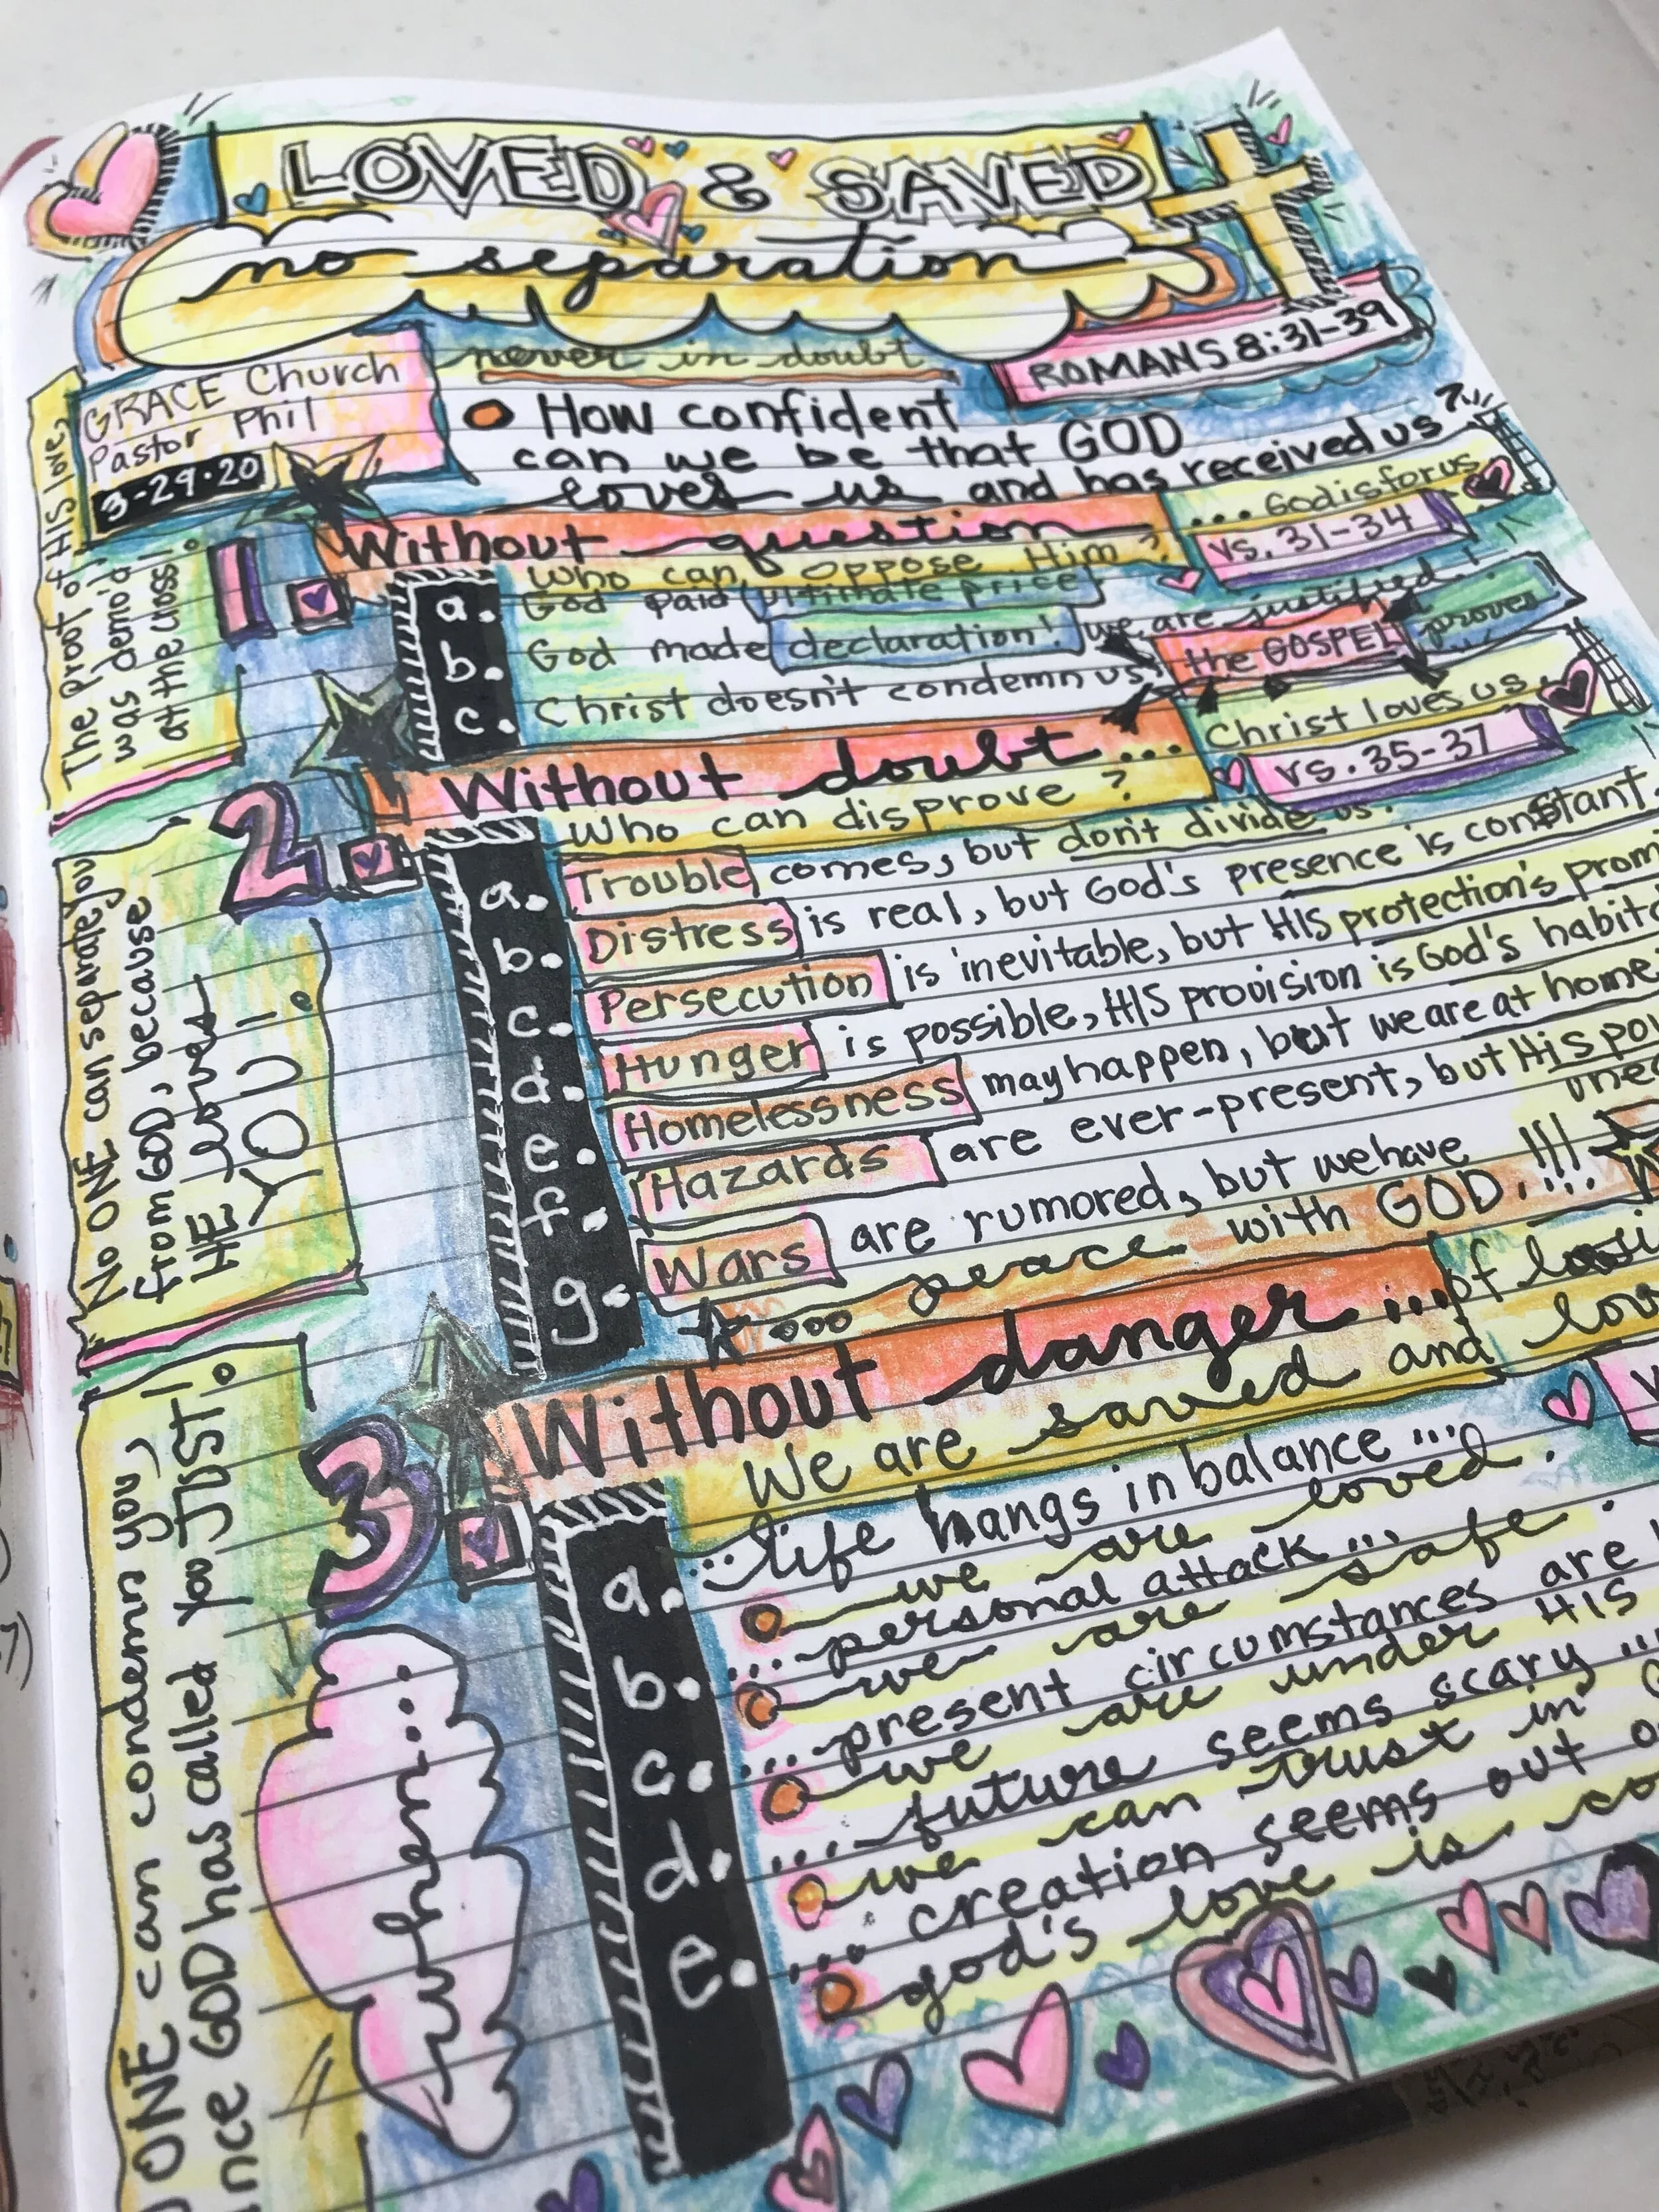 LOVED & SAVED
no separation
never in doubt
ROMANS 8:31-39
GRACE Church
Pastor Phil
3-29-20
How confident
can we be that GOD
loves us and has received us?
The proof of HIS love,
was demo'd
at the cross!
1.
Without question
... God is for us
vs. 31-34
Who can oppose Him?
a. God paid ultimate price!
b. God made declaration! we are justified!
c. Christ doesn't condemn us!
the GOSPEL proves
2.
Without doubt...
Christ loves us
vs. 35-37
Who can disprove?
a. Trouble comes, but don't divide us.
b. Distress is real, but God's presence is constant.
c. Persecution is inevitable, but HIS protection's prom
d. Hunger is possible, HIS provision is God's habit
e. Homelessness may happen, but we are at home
f. Hazards are ever-present, but His pow
g. Wars are rumored, but we have
... peace with GOD.!!!
No ONE can separate you
from GOD, because
HE loves
YOU!
3
Without danger ... of
We are saved and
when...
a. ... life hangs in balance ...
we are loved.
b. ... personal attack ...
we are safe.
c. ... present circumstances are
we are under HIS
d. ... future seems scary ...
we can trust in
e. ... creation seems out
god's love is
ONE can condemn you,
GOD has called you JUST!